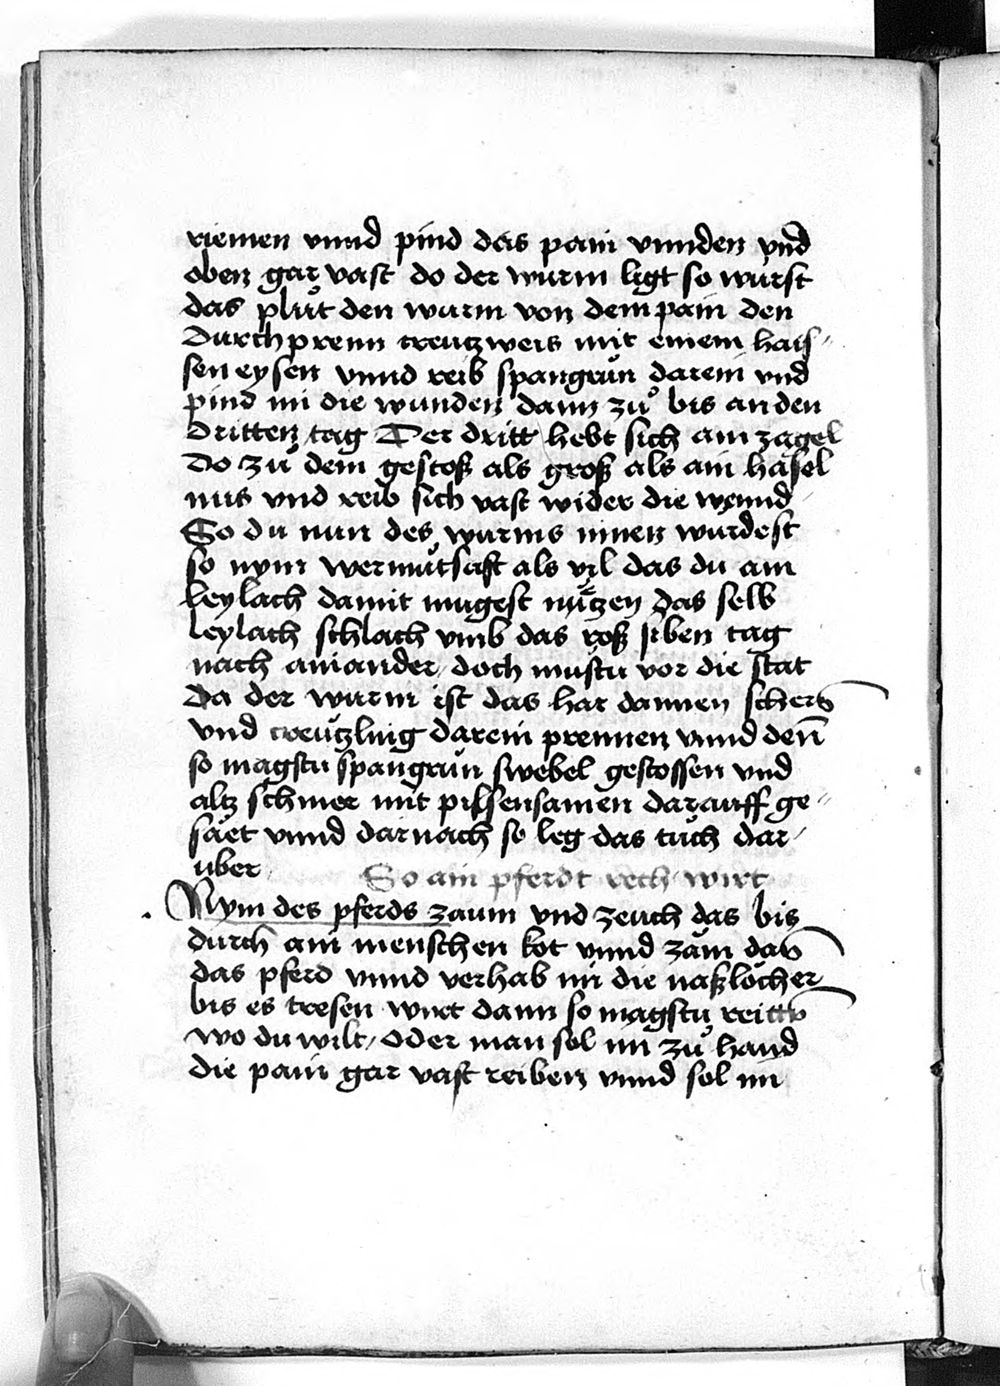 riemen vnnd pind das pain vnnden vnd
oben gar vast do der wurm ligt so wurst
das plůt den wurm von dem pain den
durchprenn creutzweis mit einem hais-
sen eysen vnnd reib spangrůn darein vnd
pind im die wunden dann zů bis an den
dritten tag Der dritt hebt sich am zagel
do zů dem gestoß als groß als ain hasel
nus vnd reib sich vast wider die wennd
So du nun des wurms innen wurdest
so nym wermůtsaft als vil das du ain
leylach damit mugest nützen das selb
leylach schlach vmb das roß siben tag
nach ainander doch mustu vor die stat
da der wurm ist das har dannen schern
vnd creutzling darein prennen vnnd denn
so magstu spangrůn swebel gestossen vnd
altz schmer mit pilsensamen darauff ge-
säet vnnd darnach so leg das tůch dar-
uber
So ain pferdt rech wirt
Nym des pferds zaum vnd zeuch das bis
durch ain menschen kot vnnd zäm dan
das pferd vnnd verhab im die naßlöcher
bis es tresen wirt dann so magstu reittn
wo du wilt / oder man sol im zů hand
die pain gar vast reiben vnnd sol im